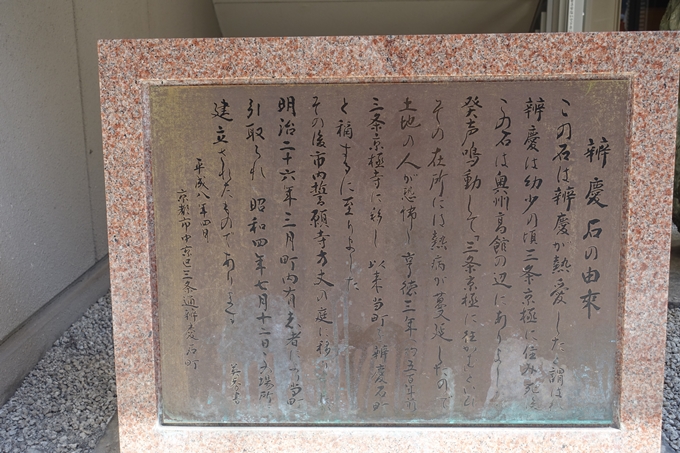 辨慶石の由来
この石は辨慶が熱愛した、謂は
辨慶は幼少の頃三条京極に住み死
この石は奥州高館の辺にありました
発声鳴動して「三条京極に往かん」と
その在所には熱病が蔓延したので
土地の人が恐怖し享徳三年
三条京極寺に移し以来当町を辨慶石町
と稱するに至りました
その後市内誓願寺方丈の庭に移
明治二十六年三月町内有志者当町
引取られ 昭和四年七月十二日この場所
建立されたものであります。
平成八年四月
京都市中京区三条通辨慶石町